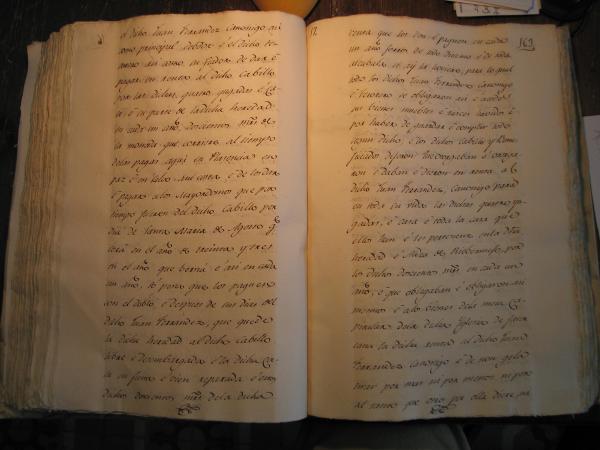 el dicho Juan Fernandez Canonigo asi
como principal debdor e el dicho te
sorero asi como su fiador de dar e
pagar en renta al dicho Cabillo
por las dichas quatro yugadas e Ca
sa e su parte de la dicha heredad
en cada un año, doscientos mrs de
la moneda que corriere al tiempo
de las pagas, aqui en Plasencia en
paz e en salvo sin costa, e de los dar
e pagar a los Mayordomos que por
tiempo fueren del dicho Cabillo por
dia de Santa Maria de Agosto q
será en el año de treinta y tres
en el año que berná e asi en cada
un año, só pena que los paguen
con el doblo, e despues de sus dias del
dicho Juan Fernandez, que quede
la dicha heredad al dicho Cabillo
libre e desembargada e la dicha Ca
sa en fiesta e bien reparada e estos
dichos doscientos mrs de la dicha
12
163
renta que los den e paguen en cada
un año forros de todo diezmo e de toda
alcabala si la hoviere, para lo qual
todo los dichos Juan Fernandez Canonigo
e Tesorero se obligaron asi e a todos
sus bienes muebles e raices havidos e
por haber de guardar e cumplir todo
segun dicho, e los dichos Cabillo y Bene
ficiados dijeron que otorgaban e otorga
ron e daban e dieron en renta a el
dicho Juan Fernandez, Canonigo para
en toda su vida las dichas quatro yu
gadas, e casa e toda la casa que
ellos han e les pertenesce en la dha
heredad e Aldea de Riobermejo, por
los dichos doscientos mrs en cada un
año, e que obligaban e obligaron asi
mesmos e a los bienes de la mesa Ca
pitular de la dicha Iglesia de facer
sana la dicha renta al dicho Juan
Fernandez Canonigo e de non gela
tirar por mas nin por menos, ni por
al tanto que otro por ella diere nin